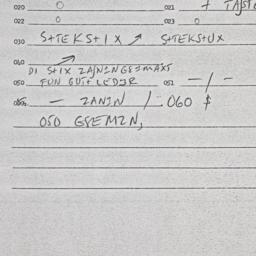 020 O 021 + TAJST
022 O 023 O
030 S+TEKS+IX ↗ S+TEKS+UX
040
DI S+IX ZAJNEN GEEMAXT
050 FUN GUT+LEDER 051 — / —
055 — ZANEN /: 060 $
050 GEEMEN,